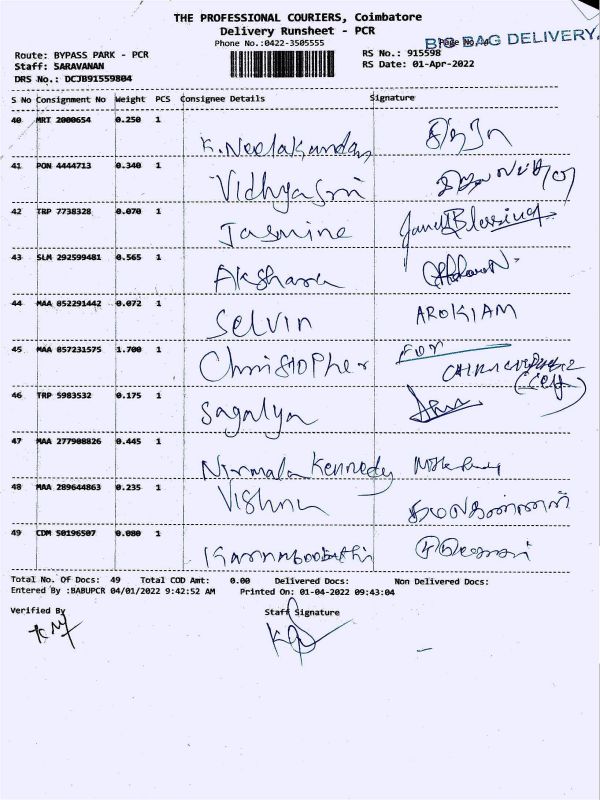 THE PROFESSIONAL COURIERS, Coimbatore
Delivery Runsheet - PCR
Phone No.:0422-3505555
BIG BAG DELIVERY
Route: BYPASS PARK - PCR
RS No.: 915598
Staff: SARAVANAN
RS Date: 01-Apr-2022
DRS No.: DCJB91559804
S No Consignment No Weight PCS Consignee Details Signature
40 MRT 2000654 0.250 1
K. Neelakandan
41 PON 4444713 0.340 1
Vidhyasri
42 TRP 7738328 0.070 1
Jasmine
43 SLM 292599481 0.565 1
Akshara
44 MAA 052291442 0.072 1
Selvin AROKIAM
45 MAA 057231575 1.700 1
Christopher FOR
46 TRP 5983532 0.175 1
Sagalya
47 MAA 277908826 0.445 1
Nirmala Kennedy
48 MAA 289644863 0.235 1
Vishnu
49 CDM 50196507 0.080 1
Total No. Of Docs: 49 Total COD Amt: 0.00 Delivered Docs: Non Delivered Docs:
Entered By :BABUPCR 04/01/2022 9:42:52 AM Printed On: 01-04-2022 09:43:04
Verified By Staff Signature